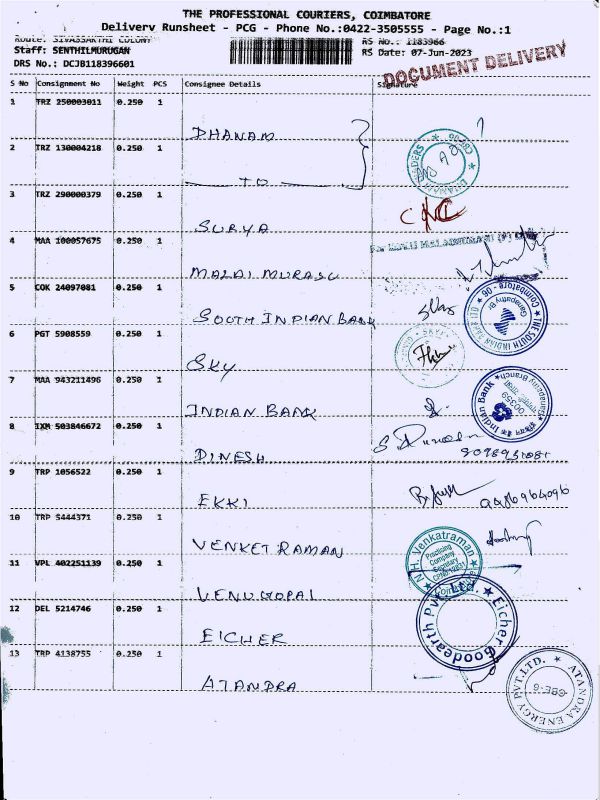 THE PROFESSIONAL COURIERS, COIMBATORE
Delivery Runsheet - PCG - Phone No.:0422-3505555 - Page No.:1
Route: SIVASAKTHI COLONY RS No.: 1183966
Staff: SENTHILMURUGAN RS Date: 07-Jun-2023
DRS No.: DCJB118396601
DOCUMENT DELIVERY
S No Consignment No Weight PCS Consignee Details Signature
1 TRZ 250003011 0.250 1
DHANAM
2 TRZ 130004218 0.250 1
TO
3 TRZ 290000379 0.250 1
SURYA
4 MAA 100057675 0.250 1
MALAI MURASU
5 COK 24097081 0.250 1
SOUTH INDIAN BANK
THE SOUTH INDIAN Coimbatore - 06 Ganapathy Br
6 PGT 5908559 0.250 1
SKY
SKY
7 MAA 943211496 0.250 1
INDIAN BANK
Indian Bank Ganapathy Branch 00359
8 IXM 503846672 0.250 1
DINESH
9 TRP 1056522 0.250 1
EKKI
10 TRP 5444371 0.250 1
VENKET RAMAN
N.H. Venkatraman Practising Company Secretary
11 VPL 402251139 0.250 1
VENUGOPAL
12 DEL 5214746 0.250 1
EICHER
Eicher Goodearth Pvt. Ltd.
13 TRP 4138755 0.250 1
ATANDRA
ATANDRA ENERGY PVT.LTD. GBE-6